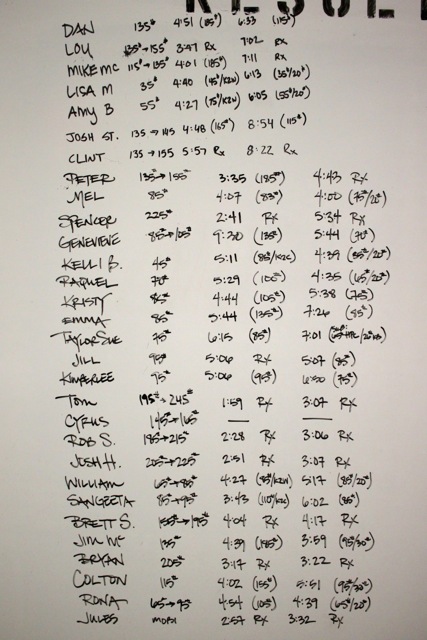 RESUL
DAN 135# 4:51 (185#) 6:33 (115#)
LOU 135#→155# 3:47 Rx 7:02 Rx
MIKE MC 115#→135# 4:01 (185#) 7:11 Rx
LISA M 35# 4:40 (45#/K2N) 6:13 (35#/20#)
AMY B 55# 4:27 (75#/K2N) 6:05 (55#/20#)
JOSH ST. 135→145 4:48 (165#) 8:54 (115#)
CLINT 135→155 5:57 Rx 8:22 Rx
PETER 135#→155# 3:35 (185#) 4:43 Rx
MEL 85# 4:07 (83#) 4:00 (75#/20#)
SPENCER 225# 2:41 Rx 5:34 Rx
GENEVIEVE 85#→105# (135#) 5:44 (70#)
KELLI B. 45# 5:11 4:39 (35#/20#)
RAQUEL 70# 5:29 4:35 (65#/20#)
KRISTY 4:44 (105#) 5:38 (75#)
EMMA 85# 5:44 (135#) 7:26
TAYLOR SUE 75# 6:15 (85#) 7:01
JILL 95# 5:06 Rx 5:07 (85#)
KIMBERLEE 75# 5:06 (95#) 6:50 (75#)
TOM 195#→245# 1:59 Rx 3:07 Rx
CYRUS 145#→165# — —
ROB S. 185→215# 2:28 Rx 3:06 Rx
JOSH H. 205→225# 2:51 Rx 3:07 Rx
WILLIAM 65#→85# 4:27 (85#/K2N) 5:17 (85#/20#)
SANGEETA 85#→95# 3:43 6:02 (85#)
BRETT S. 155#→195# 4:04 Rx 4:17 Rx
JIM MC 135# 4:39 (185#) 3:59 (95/30#)
BRYAN 205# 3:17 Rx 3:22 Rx
COLTON 115# 4:02 (155#) 5:51 (95/30#)
RONA 65#→95# 4:54 (105#) 4:39 (65#/20#)
JULES MOBI 2:57 Rx 3:32 Rx